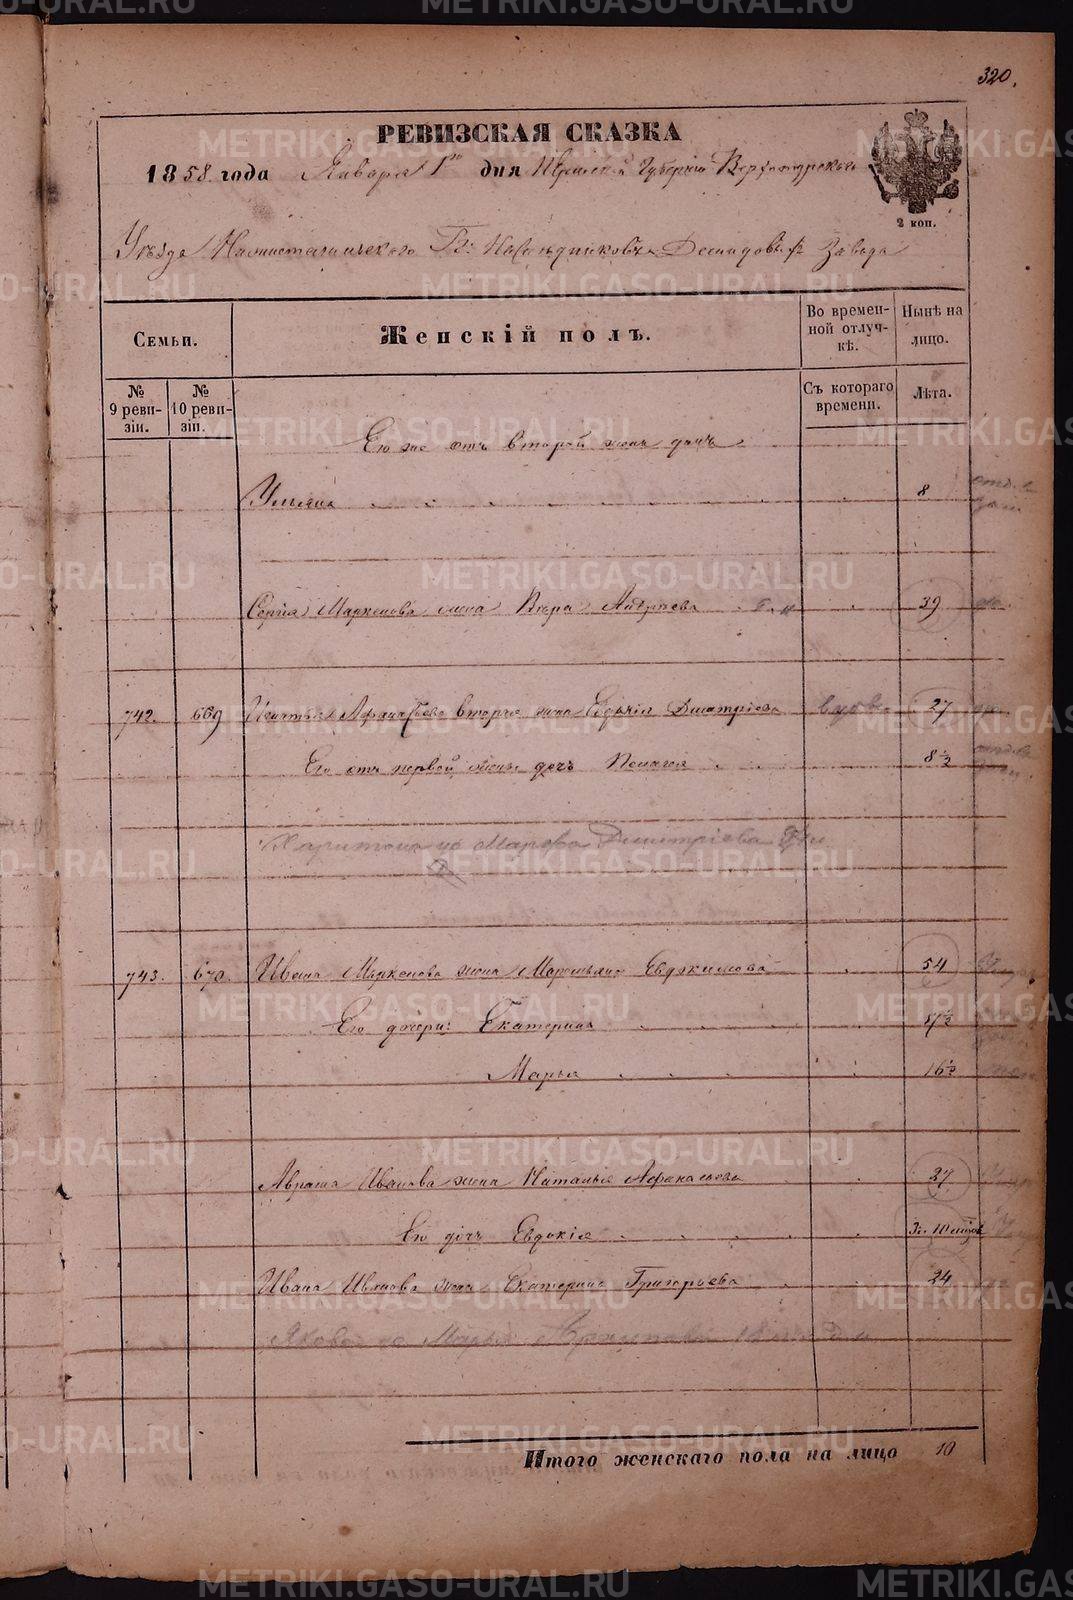 320.
РЕВИЗСКАЯ СКАЗКА
1858 года Января 1го дня Пермской Губерніи Верхотурскаго
2 коп.
Уѣзда Нижнетагильскаго Гг. Наслѣдниковъ Демидовыхъ Завода
Семьи.
Женскій полъ.
Во времен-
ной отлуч-
кѣ.
Нынѣ на
лицо.
№
9 реви-
зіи.
№
10 реви-
зіи.
Съ котораго
времени.
Лѣта.
Его же отъ второй жены дочь
Ульяна 8
Сергѣя Маркелова жена Вѣра Андреева 39
742. 669 Игнатья Афанасьева вторая жена Евдокія Дмитріева 27
Его отъ первой жены дочь Пелагея 8½
Харитона Марова Дмитріева
743. 670. Ивана Маркелова жена Евдокимова 54
Его дочери: Екатерина ½
Марья 16½
Абрама Иванова жена Наталья Афанасьева 27
Его дочь Евдокія 10 мѣсяц
Ивана Иванова жена Екатерина Григорьева 24
Якова Марья Архипова
Итого женскаго пола на лицо 10
METRIKI.GASO-URAL.RU